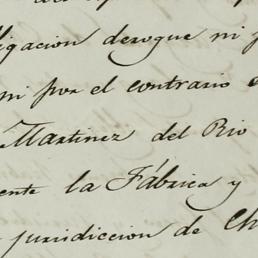 ligacion derogue ni
ni por el contrario
Martinez del Rio
ente la Fábrica y
jurisdiccion de Ch